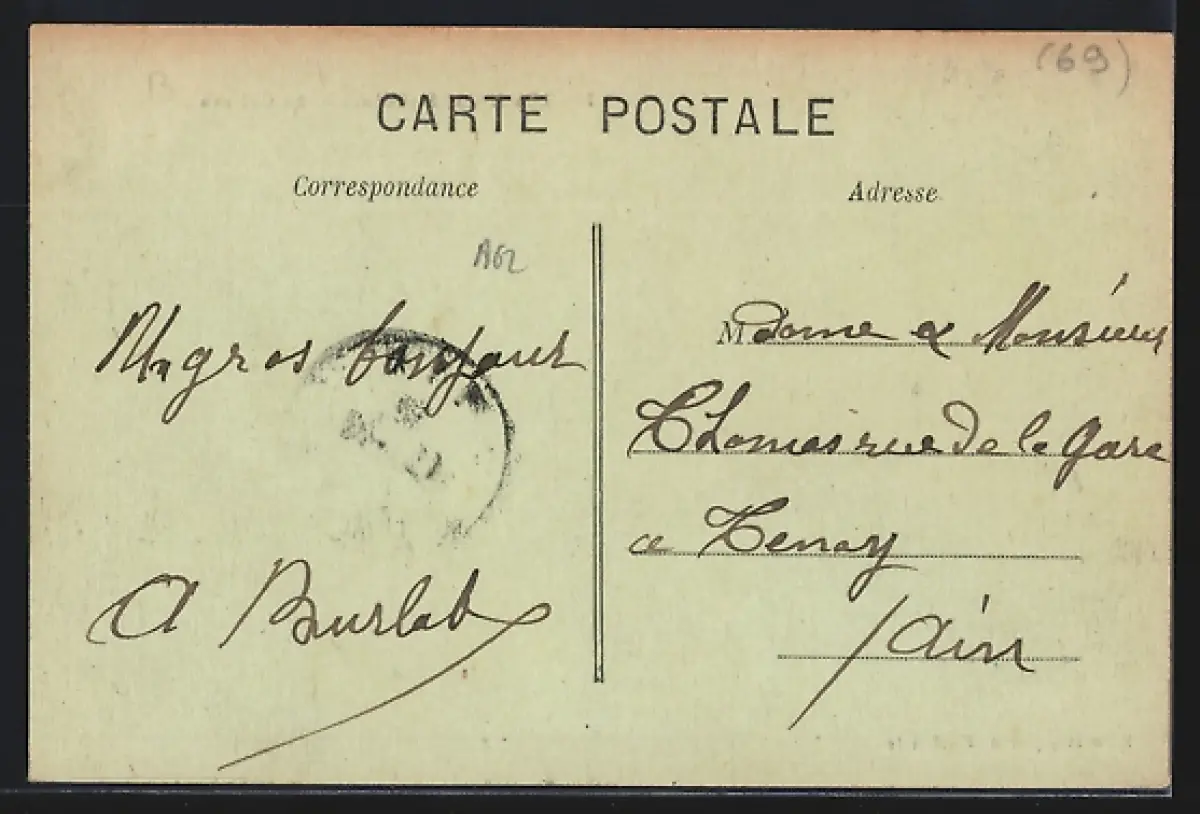 (69)
CARTE POSTALE
Correspondance
Adresse
A62
Un gros bonjour
A Burlat
Madame & Monsieur
Thomas rue de la Gare
a Tenay
Ain